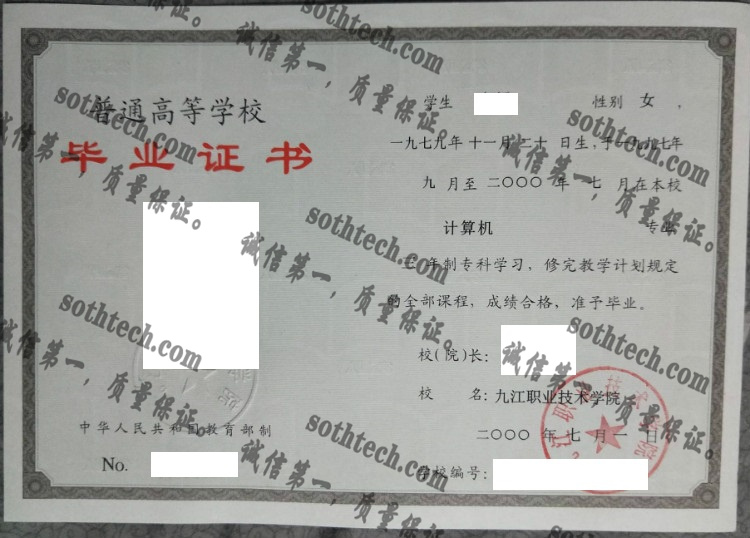 普通高等学校
毕业证书
中华人民共和国教育部制
No.
学生 性别 女 ，
一九七九年 十一月 二十 日生，于一九九七年
九 月至 二〇〇〇 年 七 月在本校
计算机 专业
三 年制专科学习，修完教学计划规定
的全部课程，成绩合格，准予毕业。
校(院)长：
校 名：九江职业技术学院
二〇〇〇 年 七 月 一 日
学校编号：
九江职业技术学院
sothtech.com
诚信第一，质量保证。
sothtech.com
诚信第一，质量保证。
sothtech.com
诚信第一，质量保证。
sothtech.com
诚信第一，质量保证。
sothtech.com
诚信第一，质量保证。
sothtech.com
诚信第一，质量保证。
sothtech.com
诚信第一，质量保证。